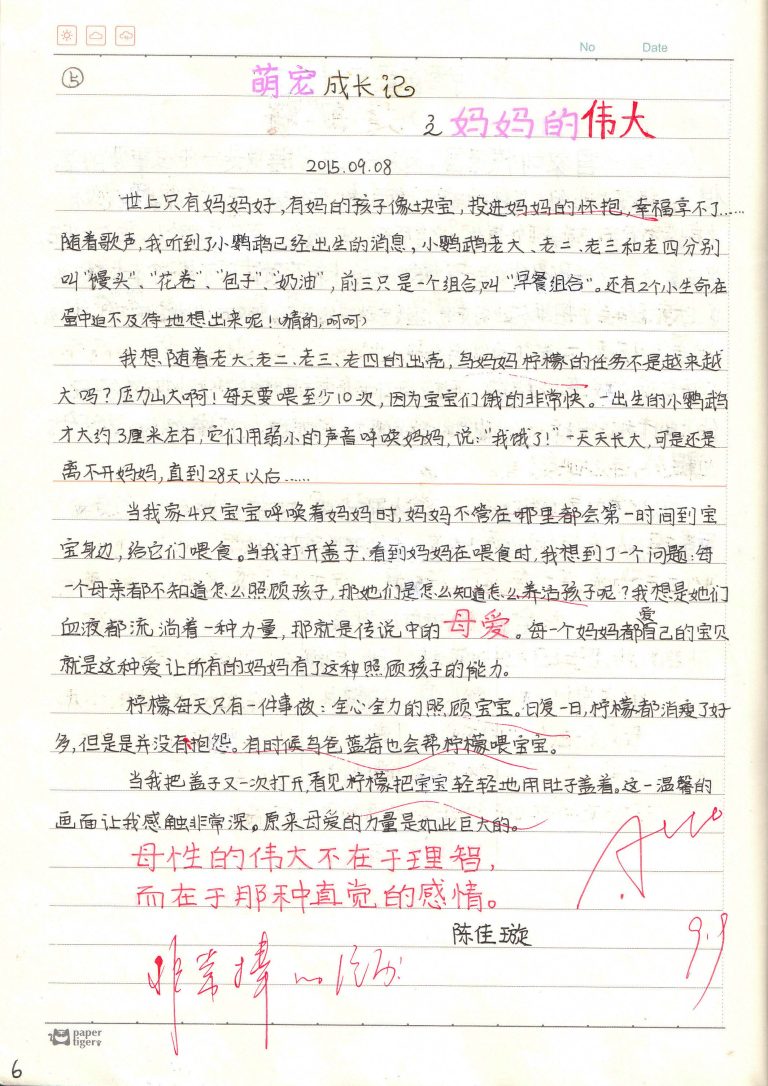 No Date
上
萌宠成长记
之妈妈的伟大
2015.09.08
世上只有妈妈好,有妈的孩子像块宝,投进妈妈的怀抱,幸福享不了……
随着歌声,我听到了小鹦鹉已经出生的消息,小鹦鹉老大、老二、老三和老四分别
叫“馒头”、“花卷”、“包子”、“奶油”,前三只是一个组合,叫“早餐组合”。还有2个小生命在
蛋中迫不及待地想出来呢!(猜的,呵呵)
我想随着老大、老二、老三、老四的出壳,鸟妈妈柠檬的任务不是越来越
大吗?压力山大啊!每天要喂至少10次,因为宝宝们饿的非常快。一出生的小鹦鹉
才大约3厘米左右,它们用弱小的声音呼唤妈妈,说:“我饿了!”一天天长大,可是还是
离不开妈妈,直到28天以后……
当我家4只宝宝呼唤着妈妈时,妈妈不管在哪里都会第一时间到宝
宝身边,给它们喂食。当我打开盖子,看到妈妈在喂食时,我想到了一个问题:每
一个母亲都不知道怎么照顾孩子,那她们是怎么知道怎么养活孩子呢?我想是她们
血液都流淌着一种力量,那就是传说中的母爱。每一个妈妈都爱自己的宝贝
就是这种爱让所有的妈妈有了这种照顾孩子的能力。
柠檬每天只有一件事做:全心全力的照顾宝宝。日复一日,柠檬都消瘦了好
多,但是是并没有抱怨。有时候鸟爸蓝莓也会帮柠檬喂宝宝。
当我把盖子又一次打开,看见柠檬把宝宝轻轻地用肚子盖着。这一温馨的
画面让我感触非常深。原来母爱的力量是如此巨大的。
母性的伟大不在于理智,
而在于那种直觉的感情。
陈佳璇
9.9
非常棒
paper
tiger
6